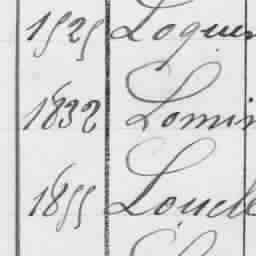 1525 Loquen
1832 Lomin
1855 Loude